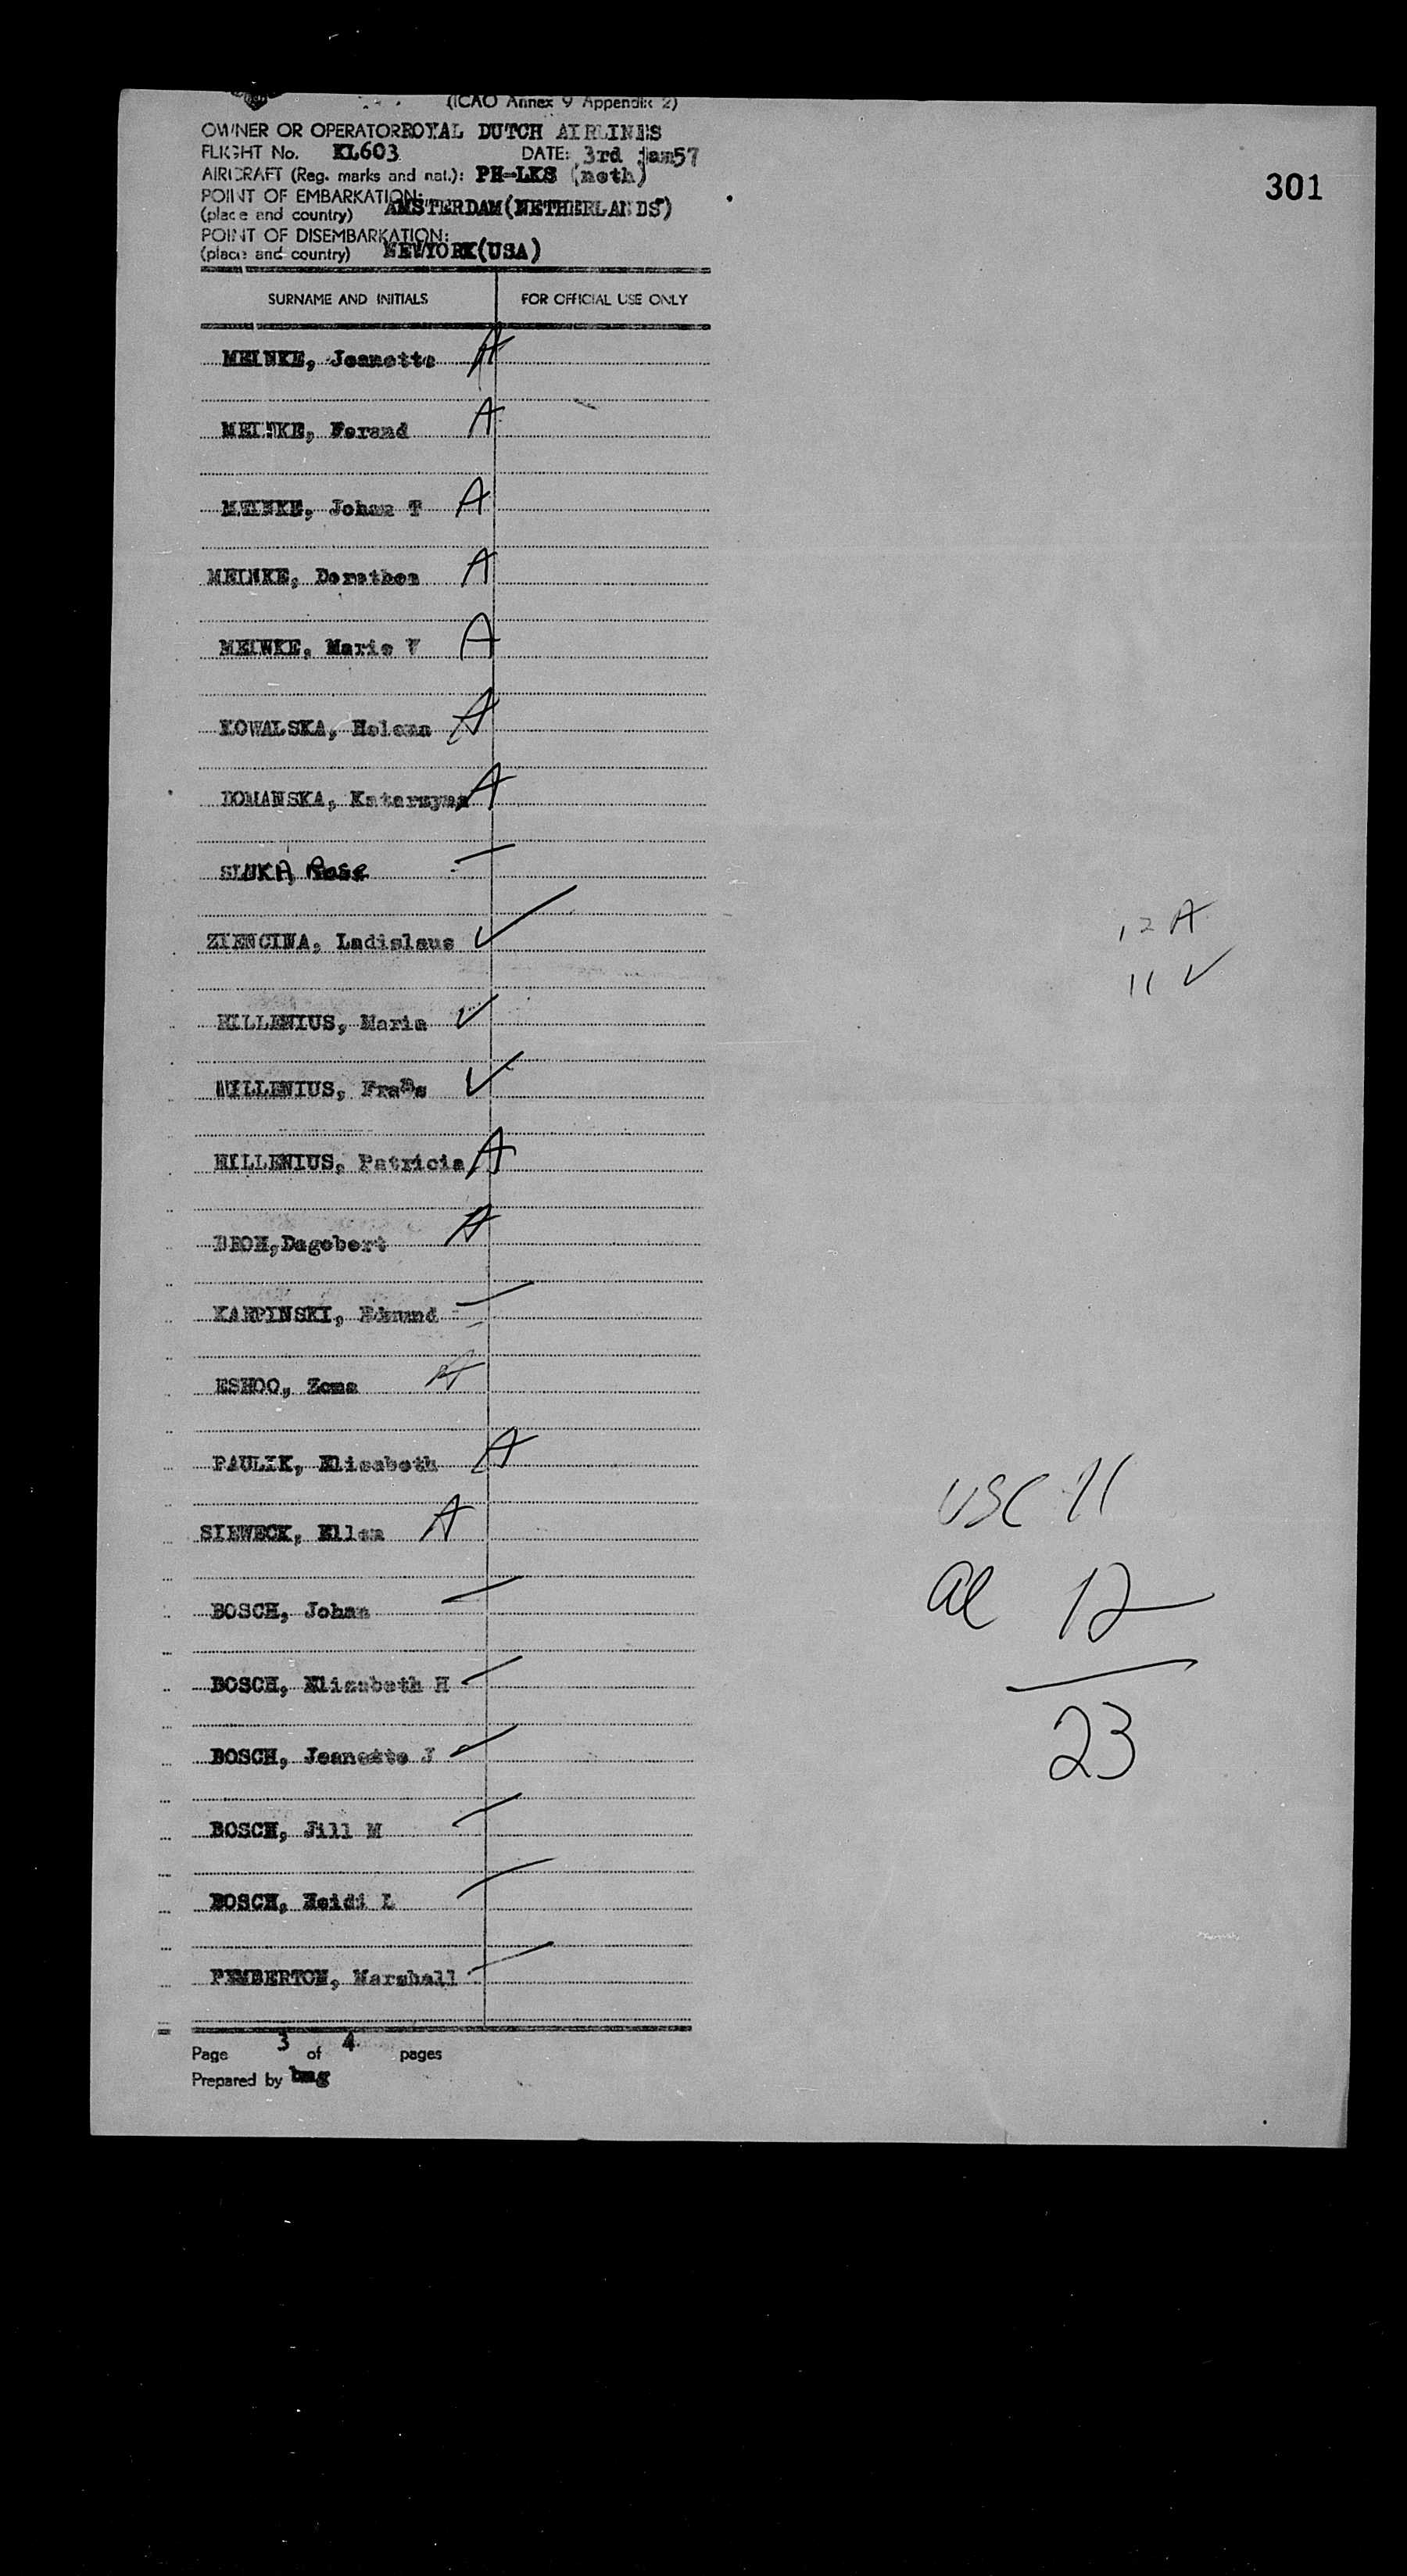 (ICAO Annex 9 Appendix 2)
OWNER OR OPERATOR ROYAL DUTCH AIRLINES
FLIGHT No. KL603 DATE: 3rd jan57
AIRCRAFT (Reg. marks and nat.): PH-LKS (neth)
301
POINT OF EMBARKATION:
(place and country) AMSTERDAM(NETHERLANDS)
POINT OF DISEMBARKATION:
(place and country) NEWYORK(USA)
SURNAME AND INITIALS FOR OFFICIAL USE ONLY
MEINKE, Jeanette A
MEINKE, Ferand A
MEINKE, Johan T A
MEINKE, Dorathea A
MEINKE, Marie V A
KOWALSKA, Helena A
DOMANSKA, Katarzyna A
SLUKA, Rose
12 A
ZIENCINA, Ladislaus ✓
11 ✓
HILLENIUS, Maria ✓
HILLENIUS, Frans ✓
HILLENIUS, Patricia A
BROH,Dagobert A
KARPINSKI, Edmund
ESHOO, Zoma A
PAULIK, Elisabeth A
USC 11
SIEWECK, Ellen A
al 12
BOSCH, Johan
BOSCH, Elizabeth H
23
BOSCH, Jeanette J
BOSCH, Jill M
BOSCH, Heidi L
PEMBERTON, Marshall
Page 3 of 4 pages
Prepared by bmg